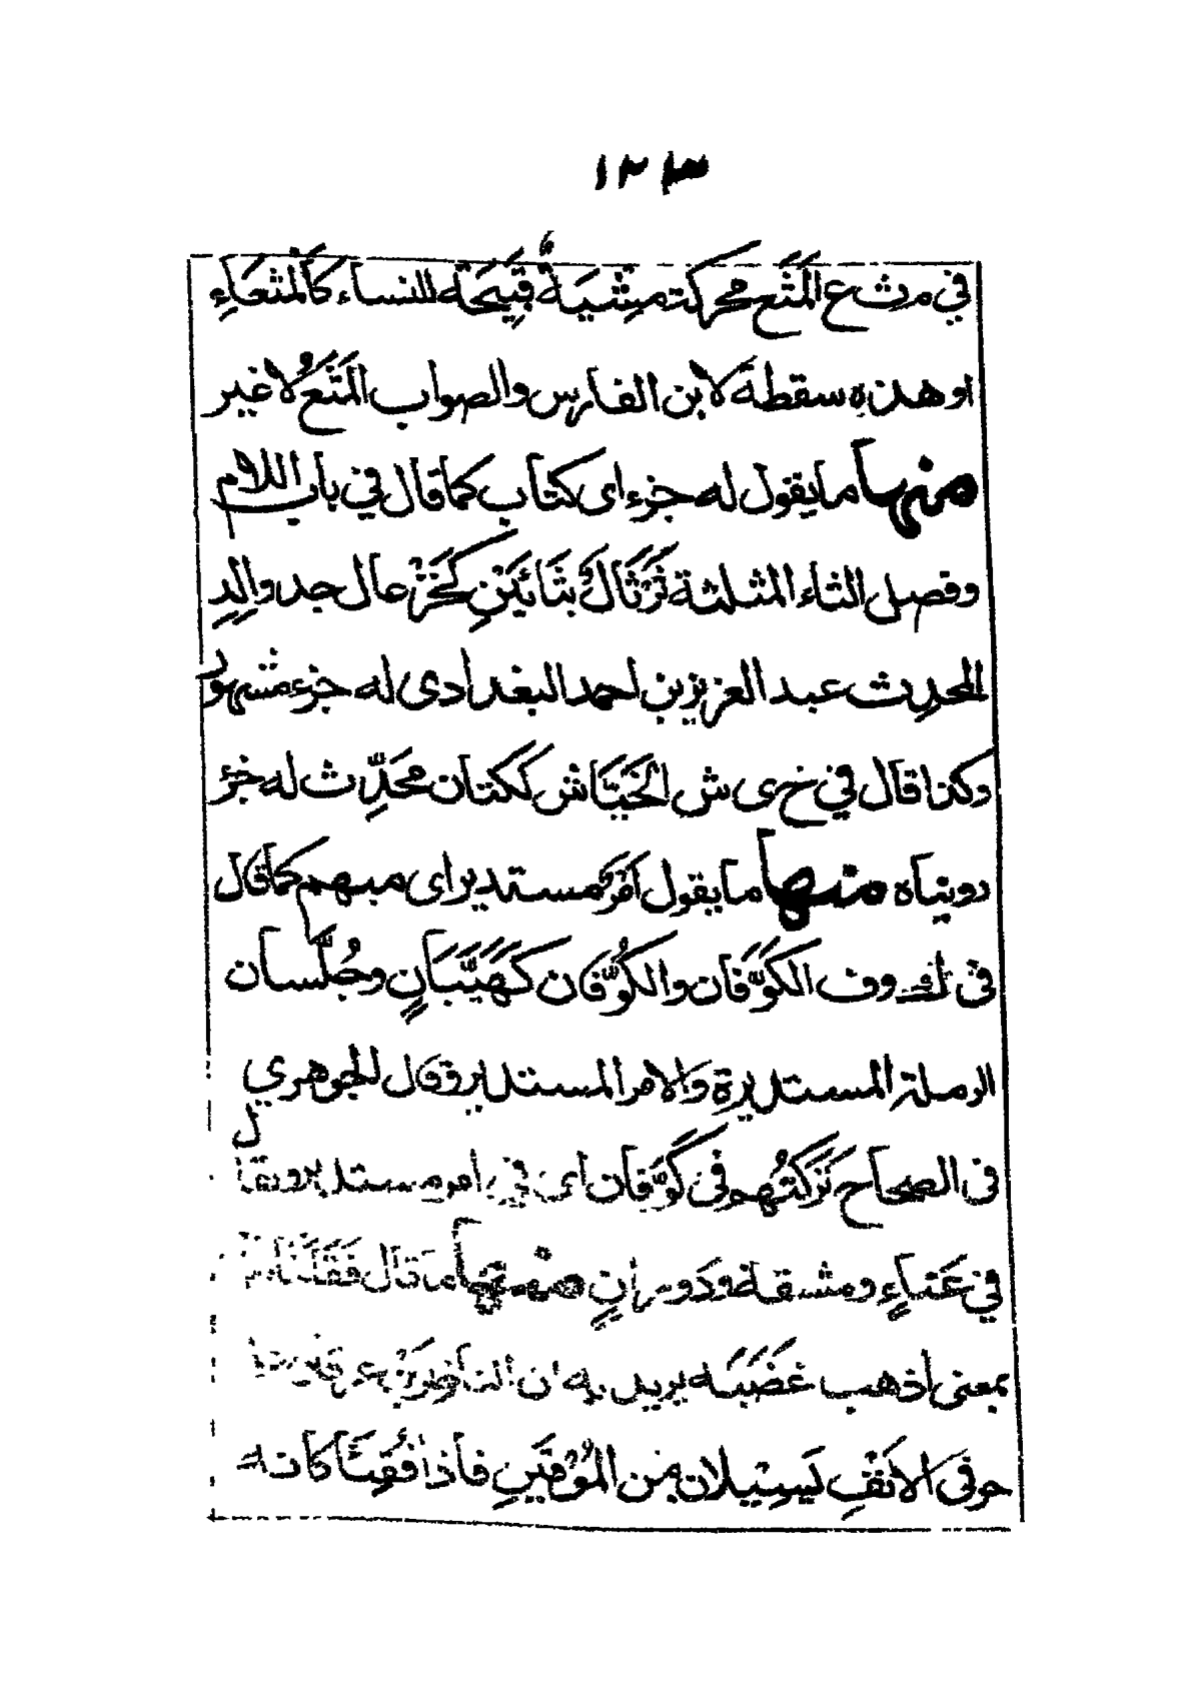 ١٢٣
في م ث ع المَثَع محركة مِشْيَةٌ قَبِيحَة للنساء كالمَثْعَاءِ
او هذه سقطة لابن الفارس والصواب المَثَعُ لا غير
منها ما يقول له جزء اى كتاب كما قال في باب اللام
وفصل الثاء المثلثة ثَرْثَالُ بثَائَيْنِ كَخَزْعال جد والدِ
المحدِث عبد العزيز بن احمد البغدادى له جزء مشهور
وكذا قال في خ ى ش الخَيَّاش ككتان محَدِّث له جزؤ
رويناه منها ما يقول امر مستدير اى مبهم كما قال
فى ك وف الكَوَّفَان والكُوَّفَان كَهَيَّبَانٍ وجُلَّسان
الرملة المستديرة والامر المستدير وقال الجوهري
فى الصحاح تَرَكْتُهم فى كُوَّفَان اى في امر مستدير ويقال
في عَنَاءٍ ومشقة ودورانٍ منها ما قال فَقَأ
بمعنى اذهب غَضَبَه يريد به ان الناظِرَيْن عرقان
حرفى الانفِ يَسِيْلان من المُوْقَينِ فاذا فُقِئَا كانه